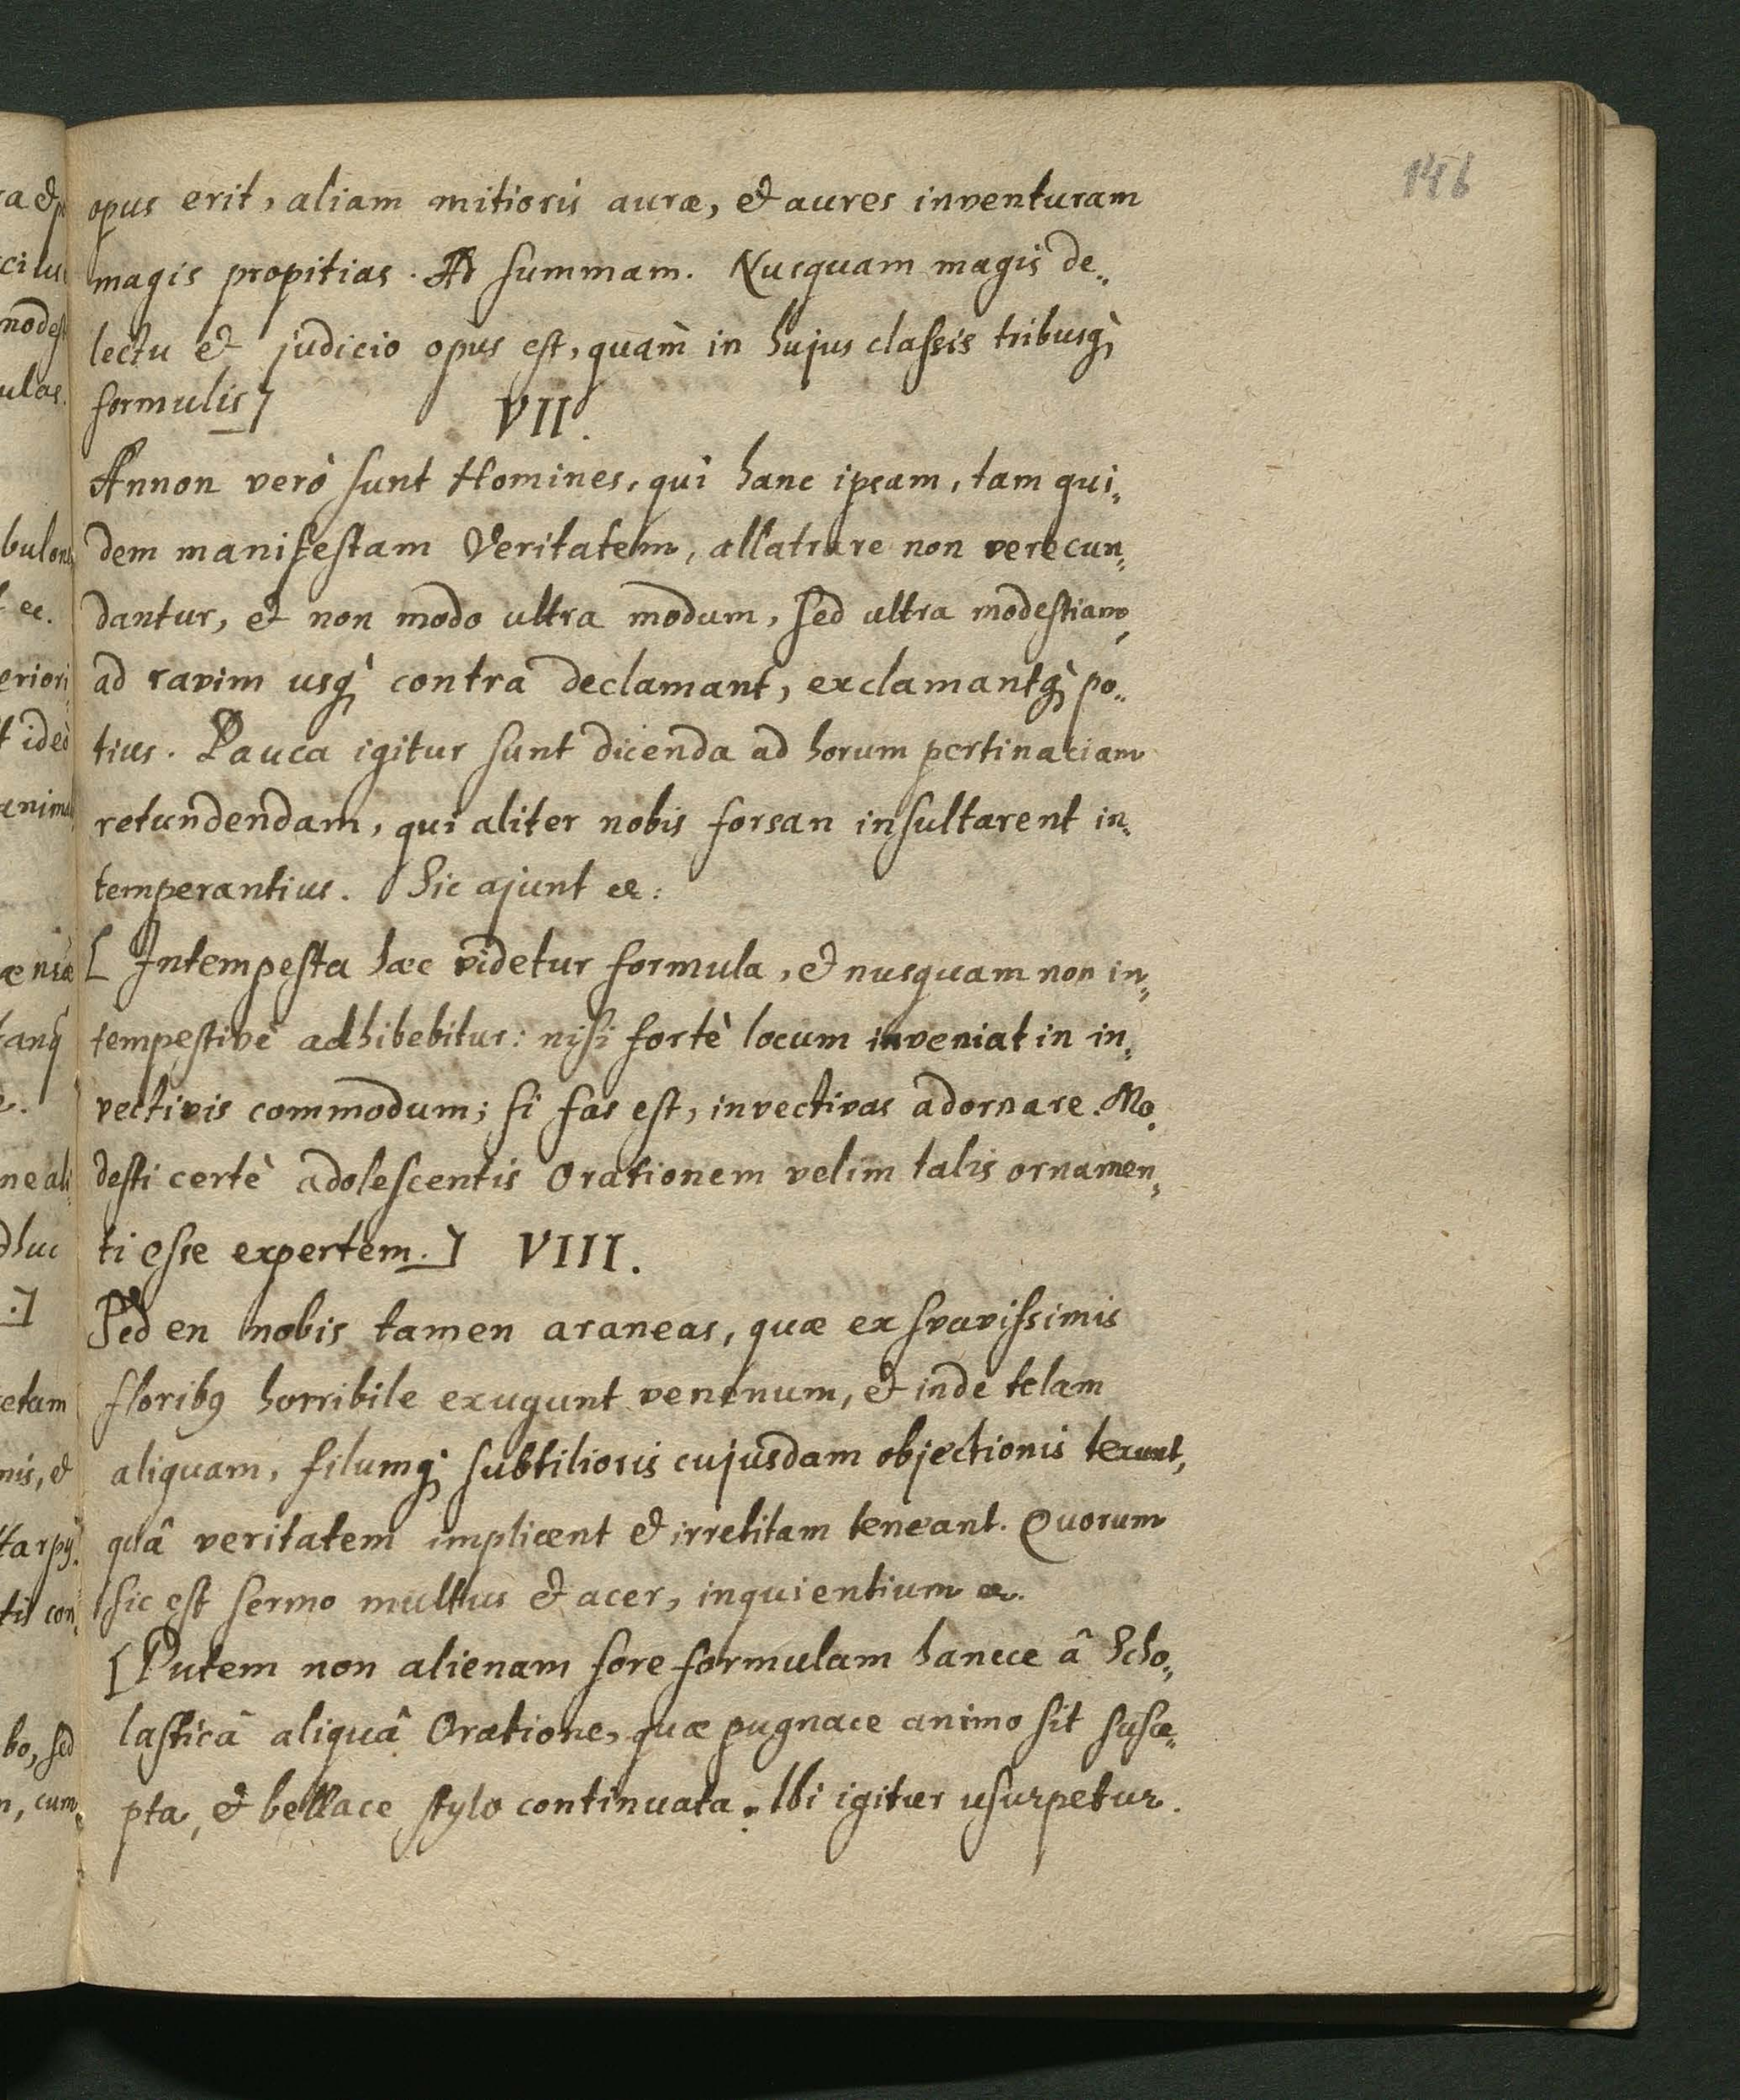 146
opus erit, aliam mitioris auræ, et aures inventuram
magis propitias. Ad summam. Nusquam magis de„
lectu et judicio opus est, quàm in hujus classis tribusq́;
formulis]
VII.
Annon verò sunt Homines, qui hanc ipsam, tam qui„
dem manifestam Veritatem, allatrare non verecun„
dantur, et non modo ultra modum, sed ultra modestiam,
ad ravim usq́; contra declamant, exclamantq́; po„
tius. Pauca igitur sunt dicenda ad horum pertinaciam
retundendam, qui aliter nobis forsan insultarent in„
temperantius. Sic ajunt &c:
[ Intempesta hæc videtur formula, et nusquam non in„
tempestivè adhibebitur: nisi fortè locum inveniat in in„
vectivis commodum; si fas est, invectivas adornare. Mo„
desti certè adolescentis Orationem velim talis ornamen„
ti esse expertem.] VIII.
Sed en nobis tamen araneas, quæ ex svavissimis
floribꝰ horribile exugunt venenum, et inde telam
aliquam, filumq́; subtilioris cujusdam objectionis texunt,
quâ veritatem implicent et irretitam teneant. Quorum
sic est sermo multus et acer, inquientium &c.
[Putem non alienam fore formulam hancce â Scho„
lasticâ aliquâ Oratione, quæ pugnace animo sit susce„
pta, et bellace stylo continuata. Ibi igitur usurpetur.